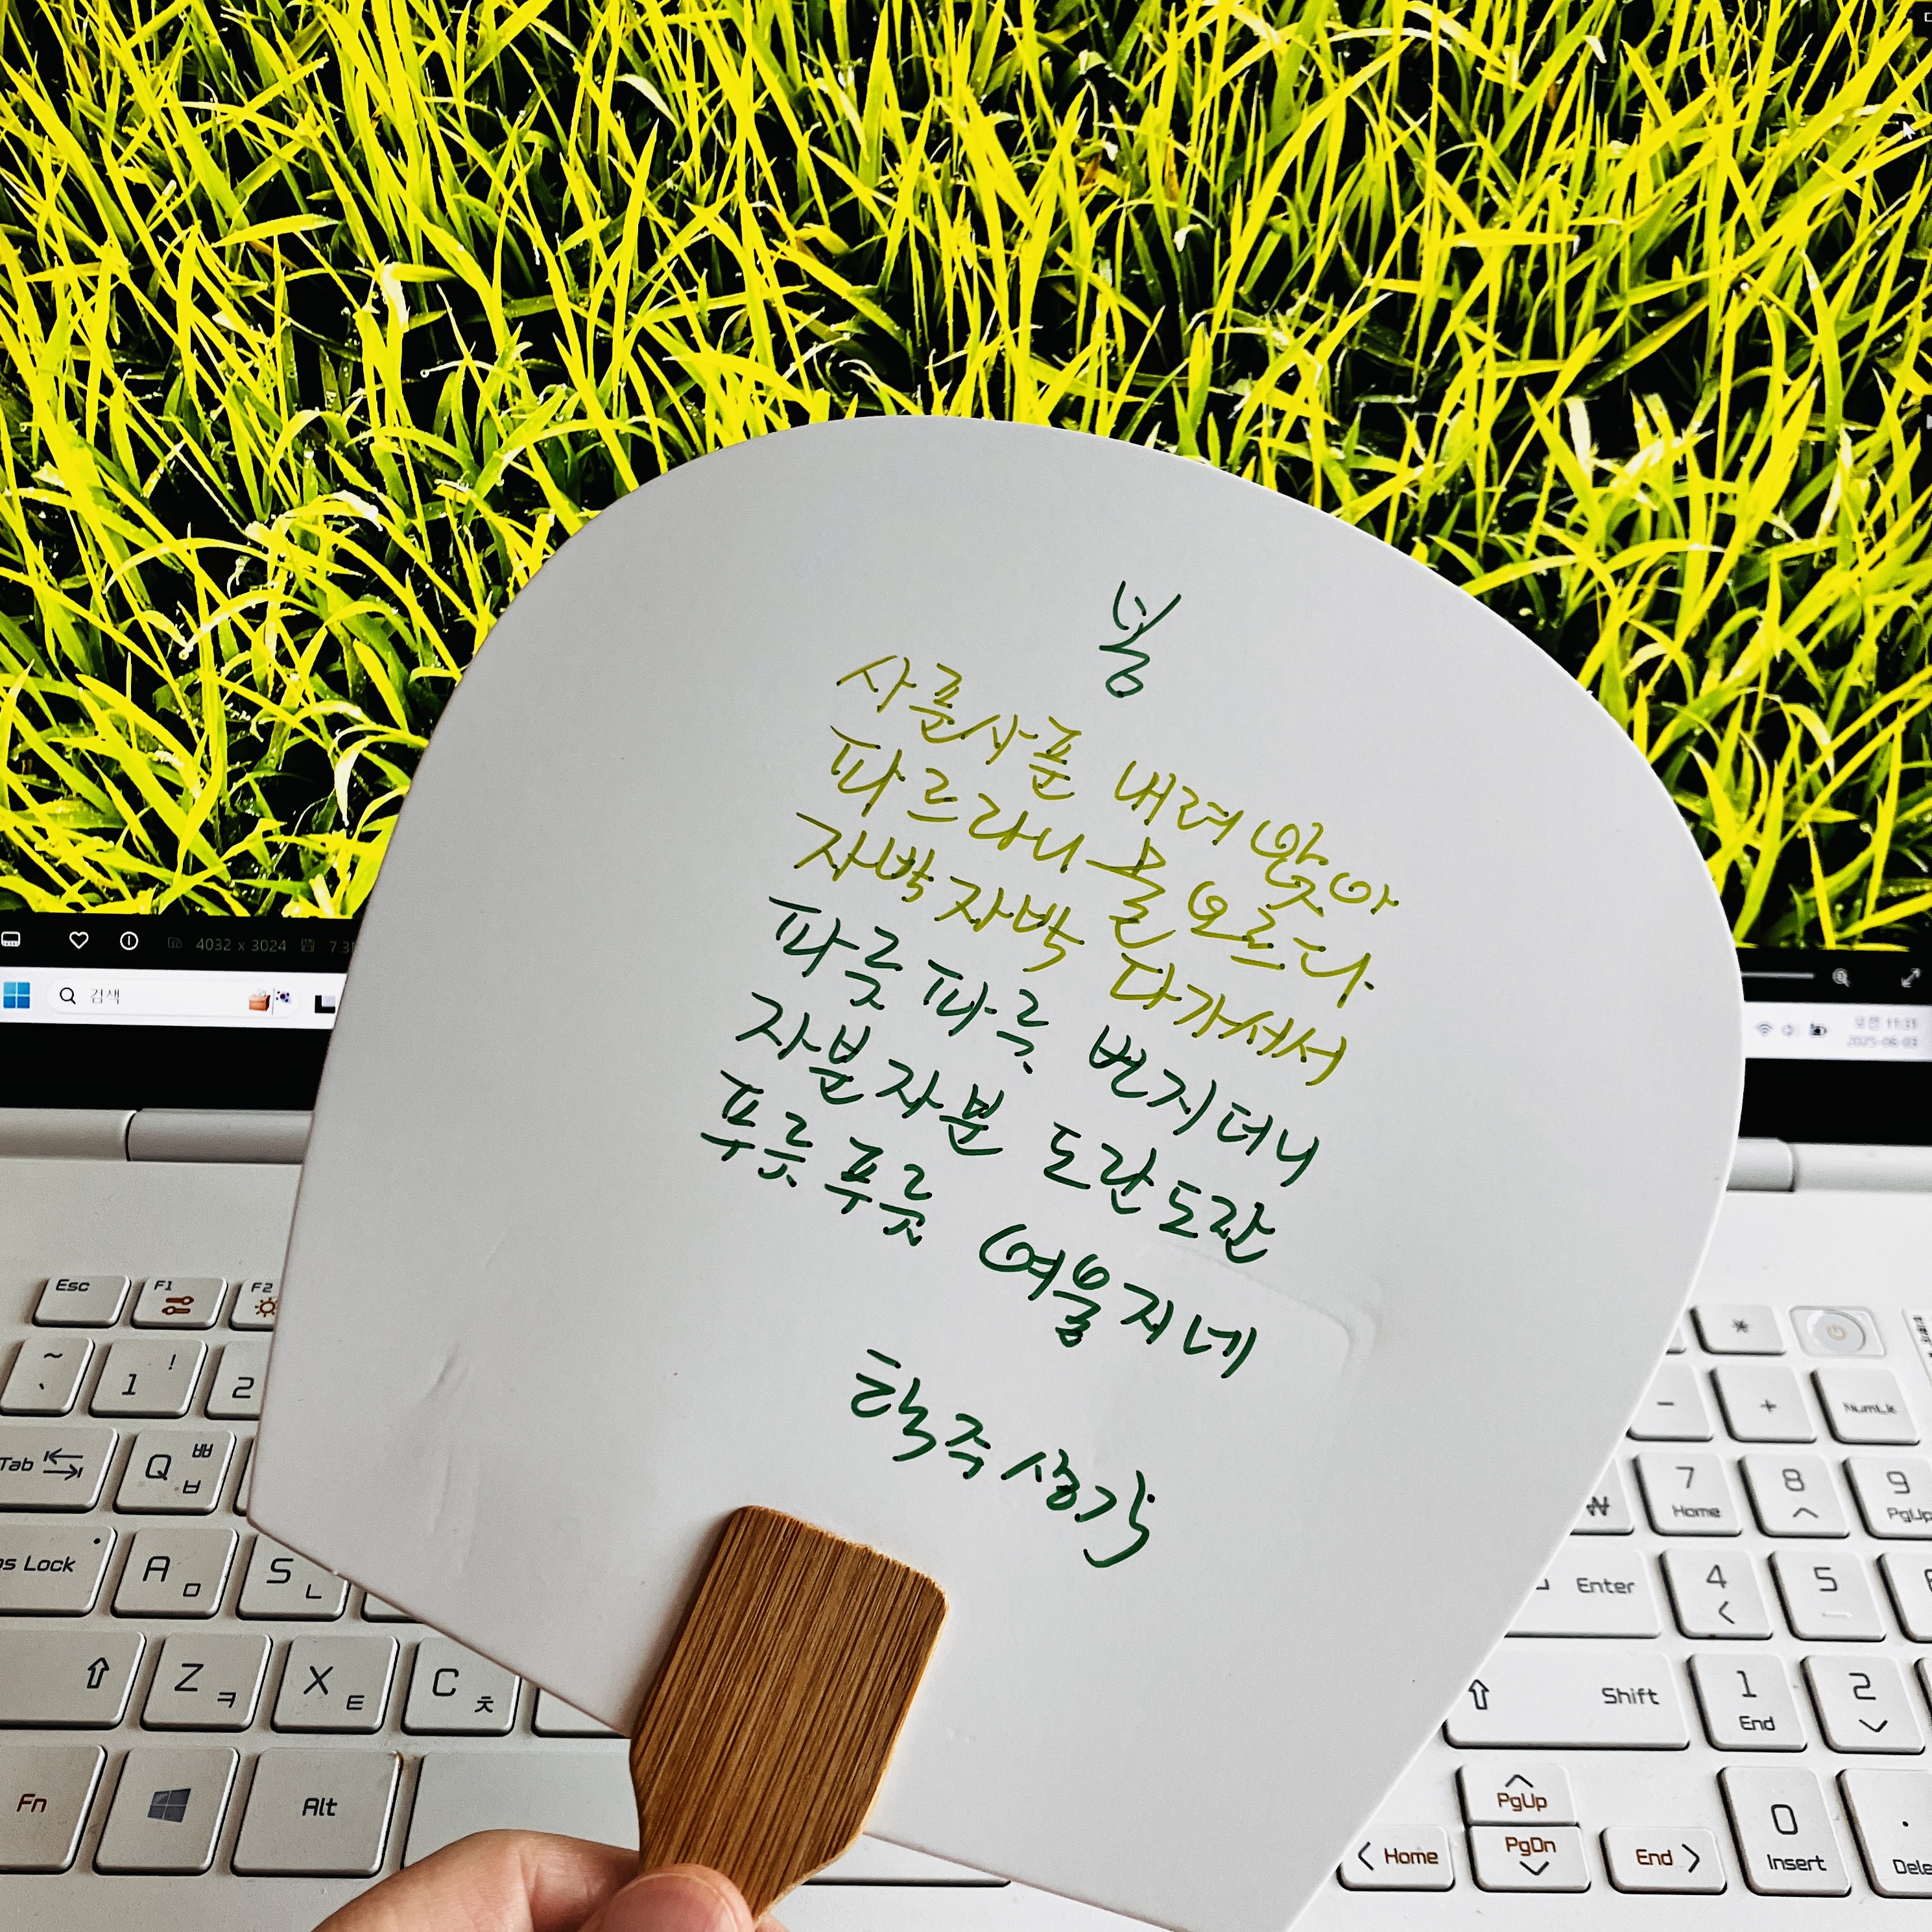 봄
사푼사푼 내려앉아
파르라니 물 오르다
자박자박 다가서서
파릇파릇 번지더니
자분자분 도란도란
푸릇푸릇 여물지네
학주생각
4032 x 3024
검색
오전 11:31
2025-06-03
Esc
F1
F2
~
`
!
1
2
Tab
Q ㅃ ㅂ
Lock
A ㅁ
S ㄴ
Z ㅋ
X ㅌ
C ㅊ
Fn
Alt
*
-
+
NumLk
₩
7 Home
8
9 PgUp
Enter
4
5
Shift
1 End
2
PgUp
Home
PgDn
End
0 Insert